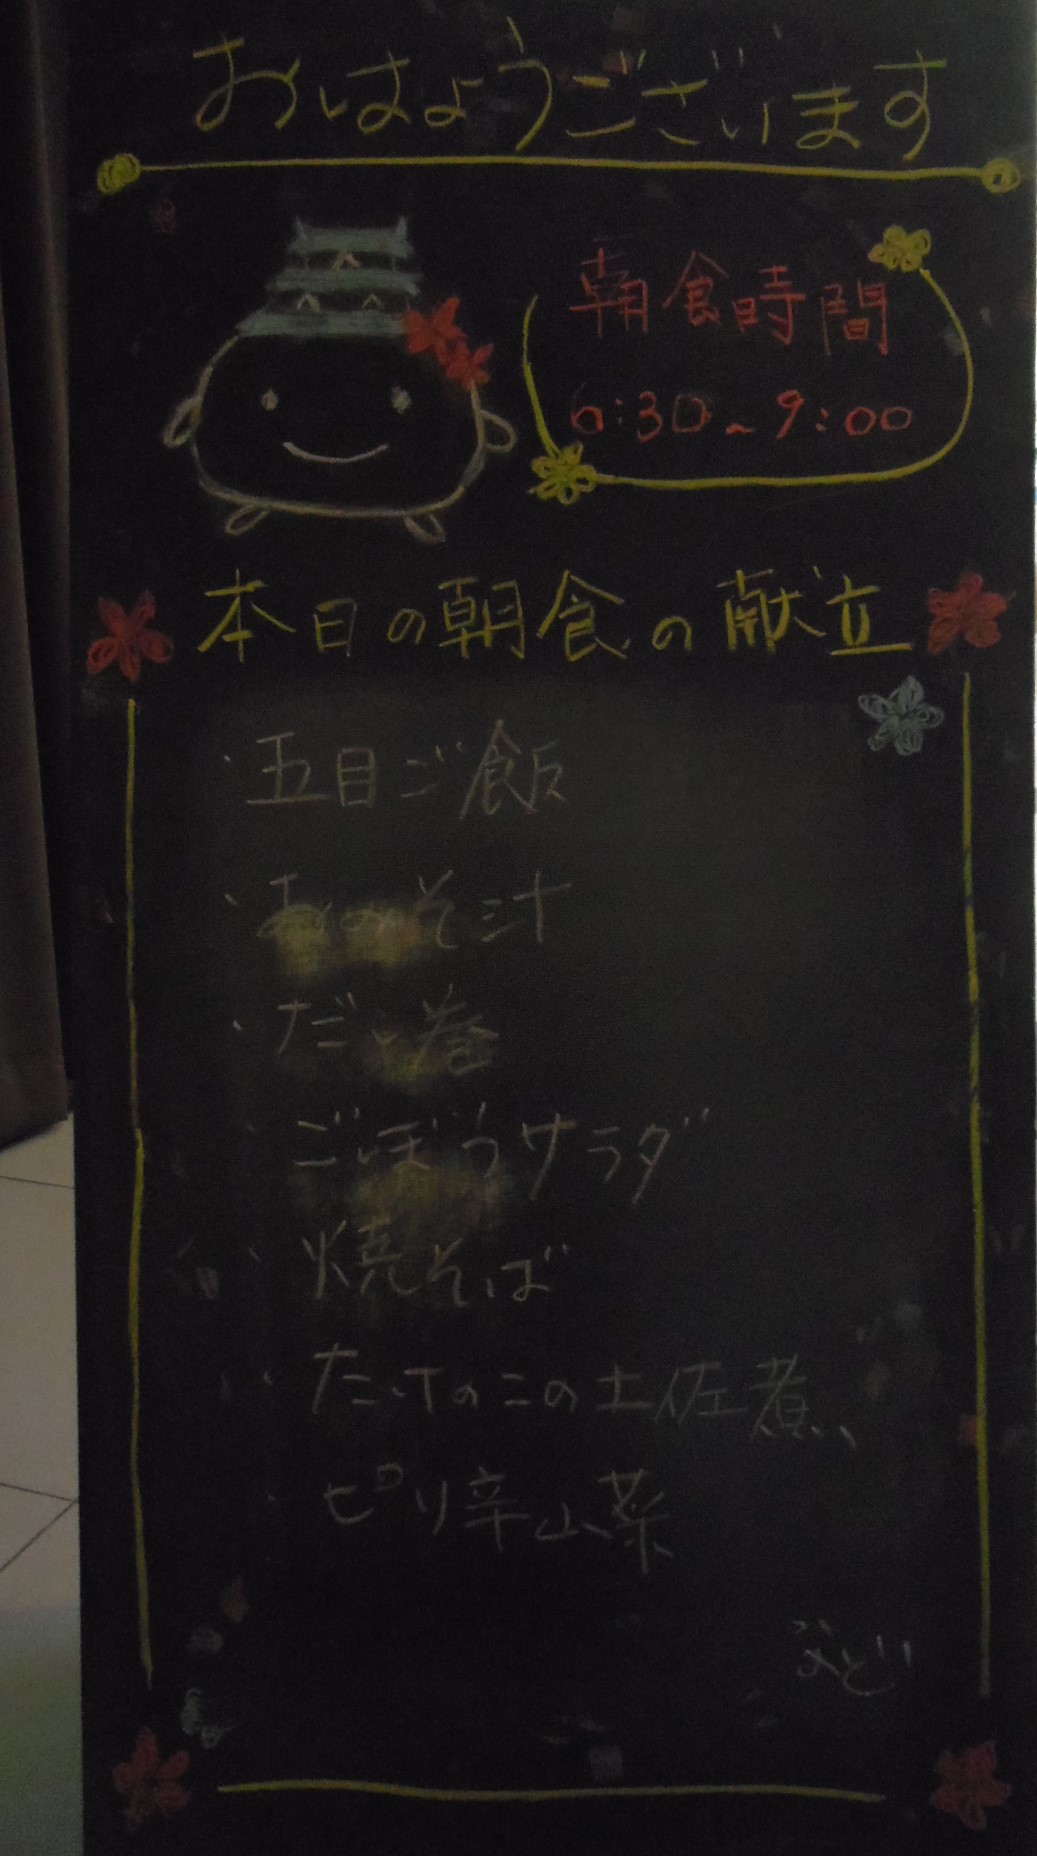 おはようございます
朝食時間
6:30~9:00
本日の朝食の献立
・五目ご飯
・おみそ汁
・だし巻
・ごぼうサラダ
・焼そば
・たけのこの土佐煮
・ピリ辛山菜
など!!